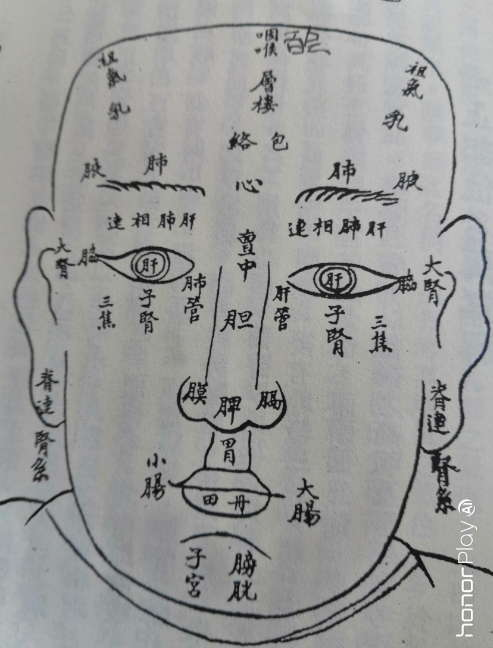 咽喉
祖氣
乳
層樓
祖氣
乳
絡包
腋
肺
心
肺
腋
連相肺肝
連相肺肝
大腎
腦
肝
肺管
亶中
肝管
肝
腦
大腎
三焦
子腎
胆
子腎
三焦
脊連腎系
膜
脾
膈
脊連腎系
胃
小腸
田丹
大腸
子宮
膀胱
honorPlay